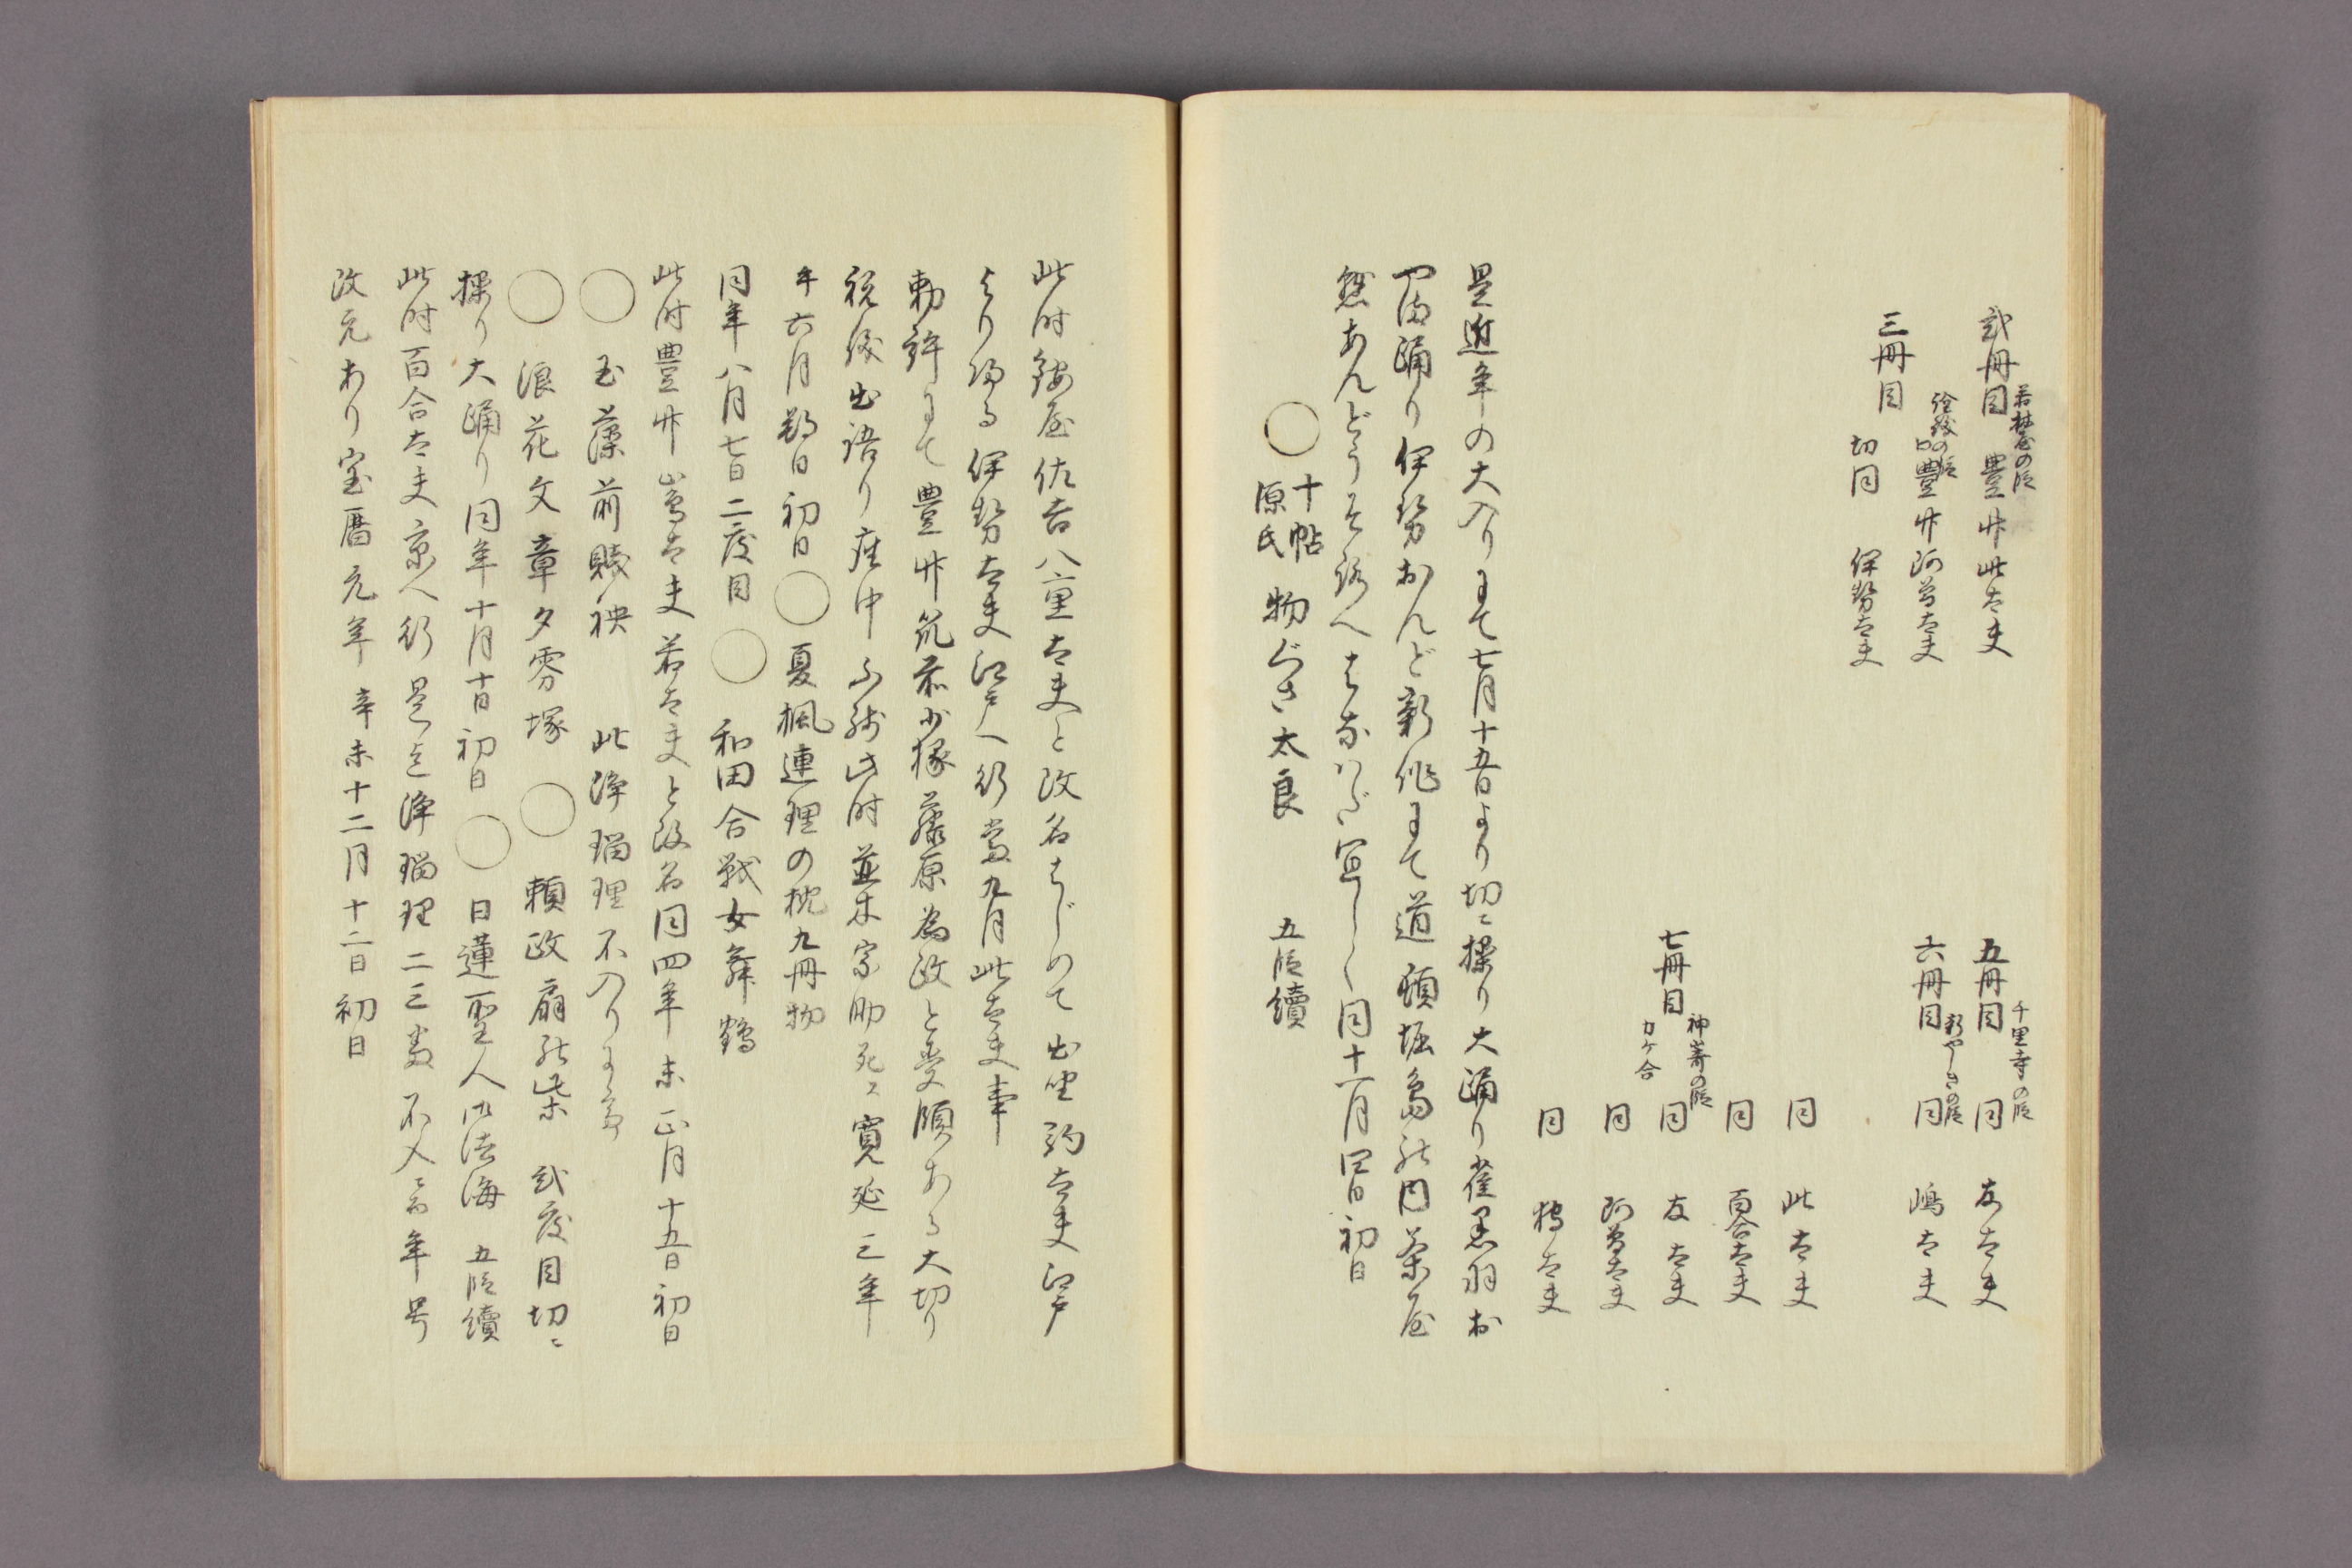 弐冊目 豊竹此太夫
若林屋の段
口豊竹阿曽太夫
三冊目
切同 伊勢太夫
五冊目 同 友太夫
千里寺の段
六冊目 同 嶋太夫
同 此太夫
同 百合太夫
七冊目 神嵜の段 カケ合
同 友太夫
同 阿曽太夫
同 太夫
是近年の大入りにて七月十五日より切ニ操り大踊り雀黒羽お
踊り伊勢おんど新作にて道頓堀島の内茶屋
惣あんどうを
宜しく同十一月四日初日
◯ 十帖源氏 物ぐさ太良 五段續
此時鐘屋佐吉八重太夫と改名はじめて出座 太夫江戸
より帰る伊勢太夫江戸へ行当九月此太夫事
勅許にて豊竹筑前少掾藤原為政と受領ある大切り
祝儀出語り座中不残此時並木宗助死ス寛延三年
午六月朔日初日◯夏楓連理の枕九冊物
同年八月七日二度目◯和田合戦女舞鶴
此時豊竹嶌太夫若太夫と改名同四年未正月十五日初日
◯玉藻前曦袂 此浄瑠理不入りに
◯浪花文章夕雰塚 ◯頼政扇の柴 弐度目切ニ
操り大踊り同年十月十日初日◯日蓮聖人御法海 五段續
此時百合太夫京へ行是迄浄瑠理二三 不入 年号
改元あり宝暦元年辛未十二月十二日初日